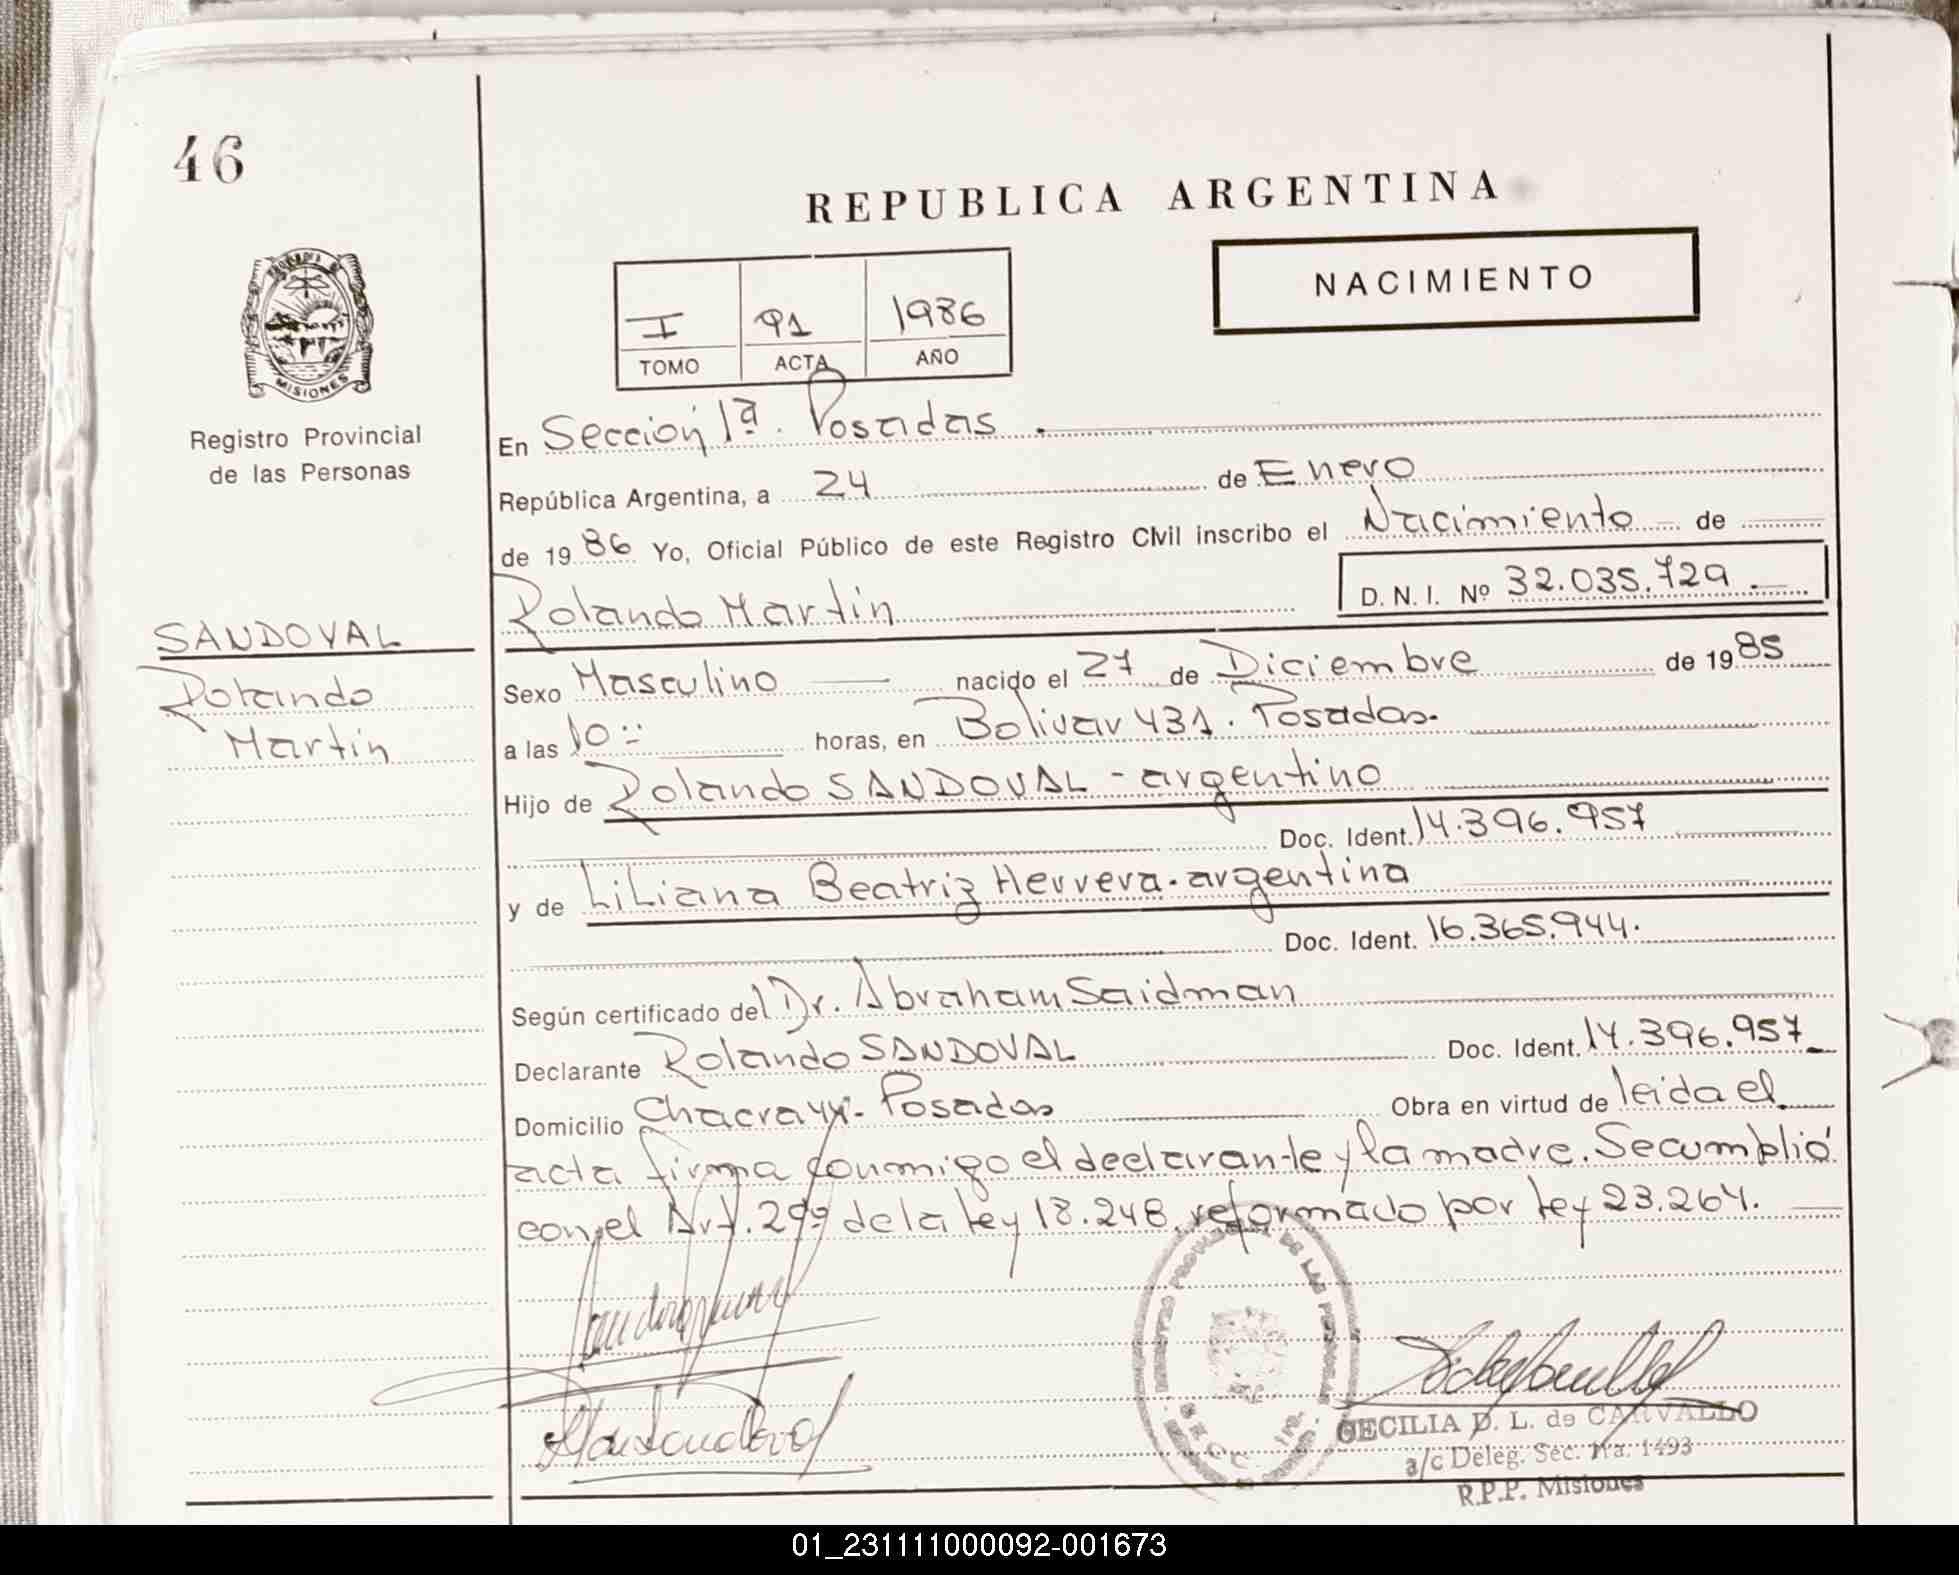 46
REPUBLICA ARGENTINA
NACIMIENTO
I 91 1986
TOMO ACTA AÑO
MISIONES
Registro Provincial
de las Personas
En Sección 1ª. Posadas
República Argentina, a 24 de Enero
de 1986 Yo, Oficial Público de este Registro Civil inscribo el Nacimiento de
Rolando Martín D. N. I. Nº 32.035.729.
SANDOVAL
Rolando
Martín
Sexo Masculino nacido el 27 de Diciembre de 1985
a las 10:- horas, en Bolivar 431. Posadas.
Hijo de Rolando SANDOVAL - argentino
Doc. Ident. 14.396.957
y de Liliana Beatriz Herrera. argentina
Doc. Ident. 16.365.944.
Según certificado del Dr. Abraham Saidman
Declarante Rolando SANDOVAL Doc. Ident. 14.396.957
Domicilio Chacra Posadas Obra en virtud de leida el
acta firma conmigo el declarante y la madre. Se cumplió
con el Art. 29º de la ley 18.248 reformado por ley 23.264.
REGISTRO PROVINCIAL DE LAS PERSONAS
CECILIA D. L. de CARVALLO
a/c Deleg. Sec. 1ra. 1493
R.P.P. Misiones
01_231111000092-001673